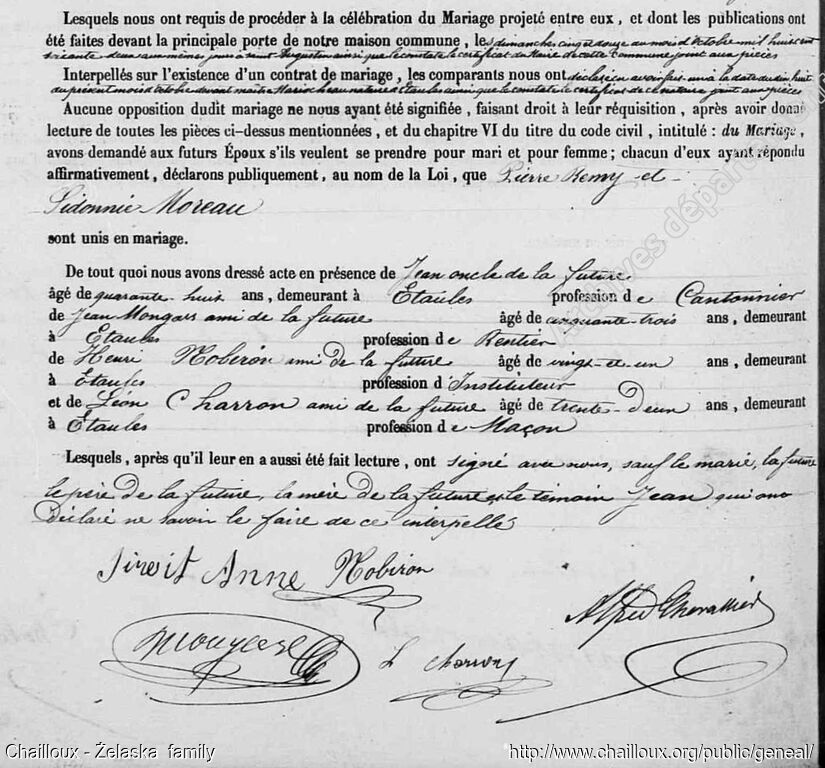 Lesquels nous ont requis de procéder à la célébration du Mariage projeté entre eux, et dont les publications ont
été faites devant la principale porte de notre maison commune, les dimanches cinq et douze au mois d'octobre mil huit cent
soixante deux aux mêmes jours à saint Augustin ainsi que le constate le certificat du Maire de cette Commune joint aux pièces
Interpellés sur l'existence d'un contrat de mariage, les comparants nous ont déclaré en avoir fait un à la date du dix huit
du présent mois d'octobre devant maître notaire à Etaules ainsi que le constate le certificat de ce notaire joint aux pièces
Aucune opposition dudit mariage ne nous ayant été signifiée, faisant droit à leur réquisition, après avoir donné
lecture de toutes les pièces ci-dessus mentionnées, et du chapitre VI du titre du code civil, intitulé : du Mariage,
avons demandé aux futurs Époux s'ils veulent se prendre pour mari et pour femme ; chacun d'eux ayant répondu
affirmativement, déclarons publiquement, au nom de la Loi, que Pierre Remy et
Sidonnie Moreau
sont unis en mariage.
De tout quoi nous avons dressé acte en présence de Jean oncle de la future
âgé de quarante-huit ans, demeurant à Etaules profession de Cantonnier
de Jean Mongars ami de la future âgé de cinquante-trois ans, demeurant
à Etaules profession de Rentier
de Henri Robiron ami de la future âgé de vingt-et-un ans, demeurant
à Etaules profession d'Instituteur
et de Léon Charron ami de la future âgé de trente-deux ans, demeurant
à Etaules profession de Maçon
Lesquels, après qu'il leur en a aussi été fait lecture, ont signé avec nous, sauf le marié, la future
le père de la future, la mère de la future et le témoin Jean qui ont
déclaré ne savoir le faire de ce interpellé
Anne Robiron
Alfred Chevallier
L Charron
Archives départ
Chailloux - Żelaska family
http://www.chailloux.org/public/geneal/